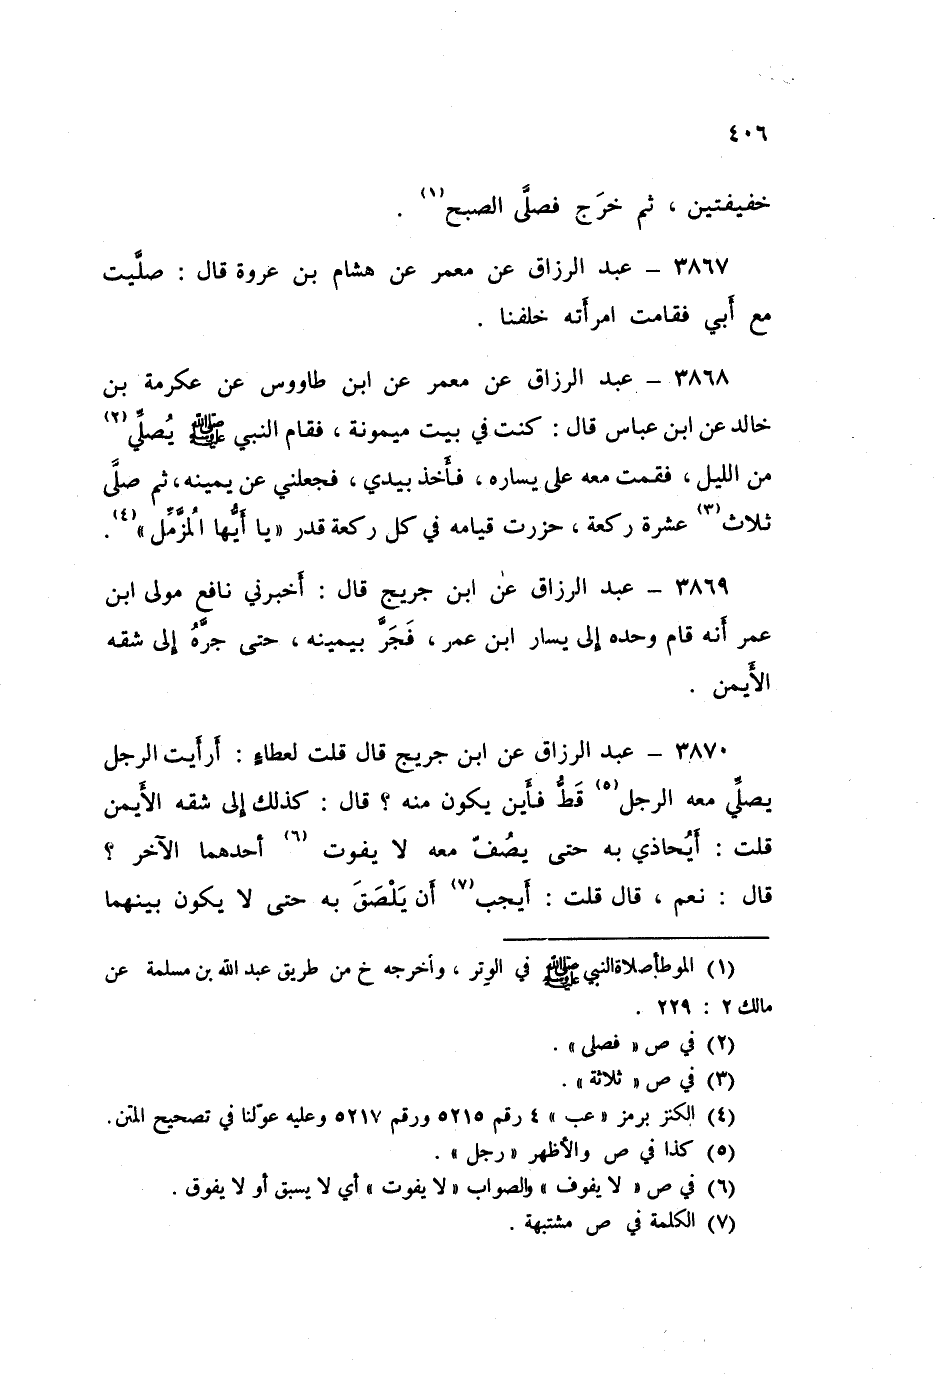 ٤٠٦
خفيفتين ، ثم خرَج فصلَّى الصبح(١) .
٣٨٦٧ – عبد الرزاق عن معمر عن هشام بن عروة قال : صلَّيت
مع أَبي فقامت امرأَته خلفنا .
٣٨٦٨ – عبد الرزاق عن معمر عن ابن طاووس عن عكرمة بن
خالد عن ابن عباس قال : كنت في بيت ميمونة ، فقام النبي ﷺ يُصلِّي(٢)
من الليل ، فقمت معه على يساره ، فأَخذ بيدي ، فجعلني عن يمينه، ثم صلَّى
ثلاث(٣) عشرة ركعة ، حزرت قيامه في كل ركعة قدر «يا أَيُّها الْمُزَّمِّل»(٤).
٣٨٦٩ – عبد الرزاق عن ابن جريج قال : أَخبرني نافع مولى ابن
عمر أَنه قام وحده إِلى يسار ابن عمر ، فَجَرَّ بيمينه ، حتى جرَّهُ إِلى شقه
الأَيمن .
٣٨٧٠ – عبد الرزاق عن ابن جريج قال قلت لعطاءٍ : أَرأَيت الرجل
يصلِّي معه الرجل(٥) قَطُّ فأَين يكون منه ؟ قال : كذلك إِلى شقه الأَيمن
قلت : أَيُحاذي به حتى يصُفّ معه لا يفوت (٦) أحدهما الآخر ؟
قال : نعم ، قال قلت : أَيجب(٧) أَن يَلْصَقَ به حتى لا يكون بينهما
(١) الموطأصلاةالنبي ﷺ في الوتِر ، وأخرجه خ من طريق عبد الله بن مسلمة عن
مالك ٢ : ٢٢٩ .
(٢) في ص « فصلى » .
(٣) في ص « ثلاثة » .
(٤) الكنز برمز « عب » ٤ رقم ٥٢١٥ ورقم ٥٢١٧ وعليه عوّلنا في تصحيح المتن.
(٥) كذا في ص والأظهر « رجل » .
(٦) في ص « لا يفوف » والصواب « لا يفوت » أي لا يسبق أو لا يفوق .
(٧) الكلمة في ص مشتبهة .